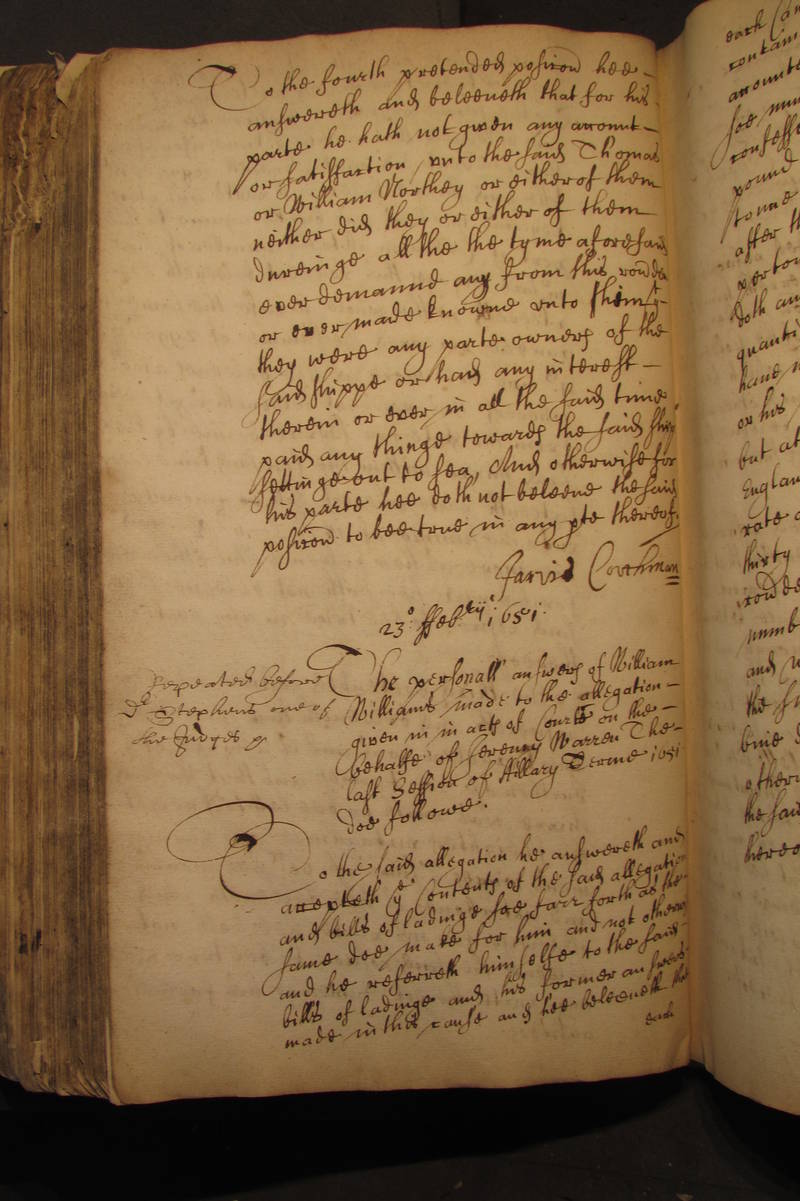 To the fourth pretended posicõn hee
answereth and beleeveth that for his
parte he hath not given any accompt
or satisfaction unto the said Thomas
or William Northey or either of them
neither did they or either of them
dureinge all the the tyme aforesaid
ever demannd any from this rondt
or ever made knowne unto them yt
they were any parte owners of the
said shippe or had any interest
therein or ever in all the said time
paid any thinge towards the said ship
settinge out to sea, And otherwise for
his parte hee doth not beleeve the said
posicõn to bee true in any pte thereof.
Jarvis Couchman
23o. ffebryij 1651.
Repeated before
Dr Stephens one of
the Judges
The personall answers of William
Williams made to the allegation
given in in acts of Courte on the
behalfe of Jeremy Warren The
last Session of Hillary Terme 1651
doe followe.
To the said allegation he answereth and
accepteth ye Contents of the said allegation
and bills of ladinge soe farr forth as the
same doe make for him and not otherw
and he referreth himselfe to the said
bills of ladinge and his former answers
made in this cause and hee beleeveth that
each
each
contain
accompte
soe
confesse
pound
tonne
after th
doth an
quanti
have
or his
but at
England
rate
thirty
numb
and
the
others
the said
hereo